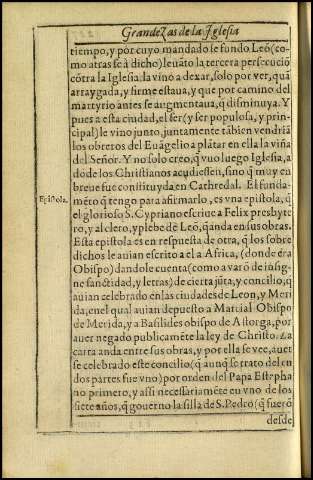 Grandezas de la Iglesia
tiempo, y por cuyo mandado se fundo Leõ (co-
mo atras se à dicho) leuãto la tercera persecuciõ
cõtra la Iglesia: la vino a dexar, solo por ver, quã
arraygada, y firme estaua, y que por camino del
martyrio antes se augmentaua, q̃ disminuya. Y
pues a esta ciudad, el ser (y ser populosa, y prin-
cipal) le vino junto, juntamente tãbien vendriã
los obreros del Euãgelio a plãtar en ella la viña
del Señor. Y no solo creo, q̃ vuo luego Iglesia, a
dõde los Christianos acudiessen, sino q̃ muy en
breue fue constituyda en Cathredal. El funda-
Epistola.
mẽto q̃ tengo para afirmarlo, es vna epistola, q̃
el glorioso S. Cypriano escriue a Felix presbyte
ro, y al clero, y plebe dẽ Leõ, q̃ anda en sus obras.
Esta epistola es en respuesta de otra, q̃ los sobre
dichos le auian escrito a el a Africa, (donde era
Obispo) dandole cuenta (como a varõ de insig-
ne sanctidad, y letras) de cierta jũta, y concilio, q̃
auian celebrado en las ciudades de Leon, y Meri
da, en el qual auian depuesto a Martial Obispo
de Merida, y a Basilides obispo de Astorga, por
auer negado publicamẽte la ley de Christo. La
carta anda entre sus obras, y por ella se vee, auer
se celebrado este concilio (q̃ aunq̃ se trato del en
dos partes fue vno) por orden del Papa Estepha
no primero, y assi necessariamẽte en vno de los
siete años, q̃ gouerno la silla de S. Pedro (q̃ fuerõ
desde